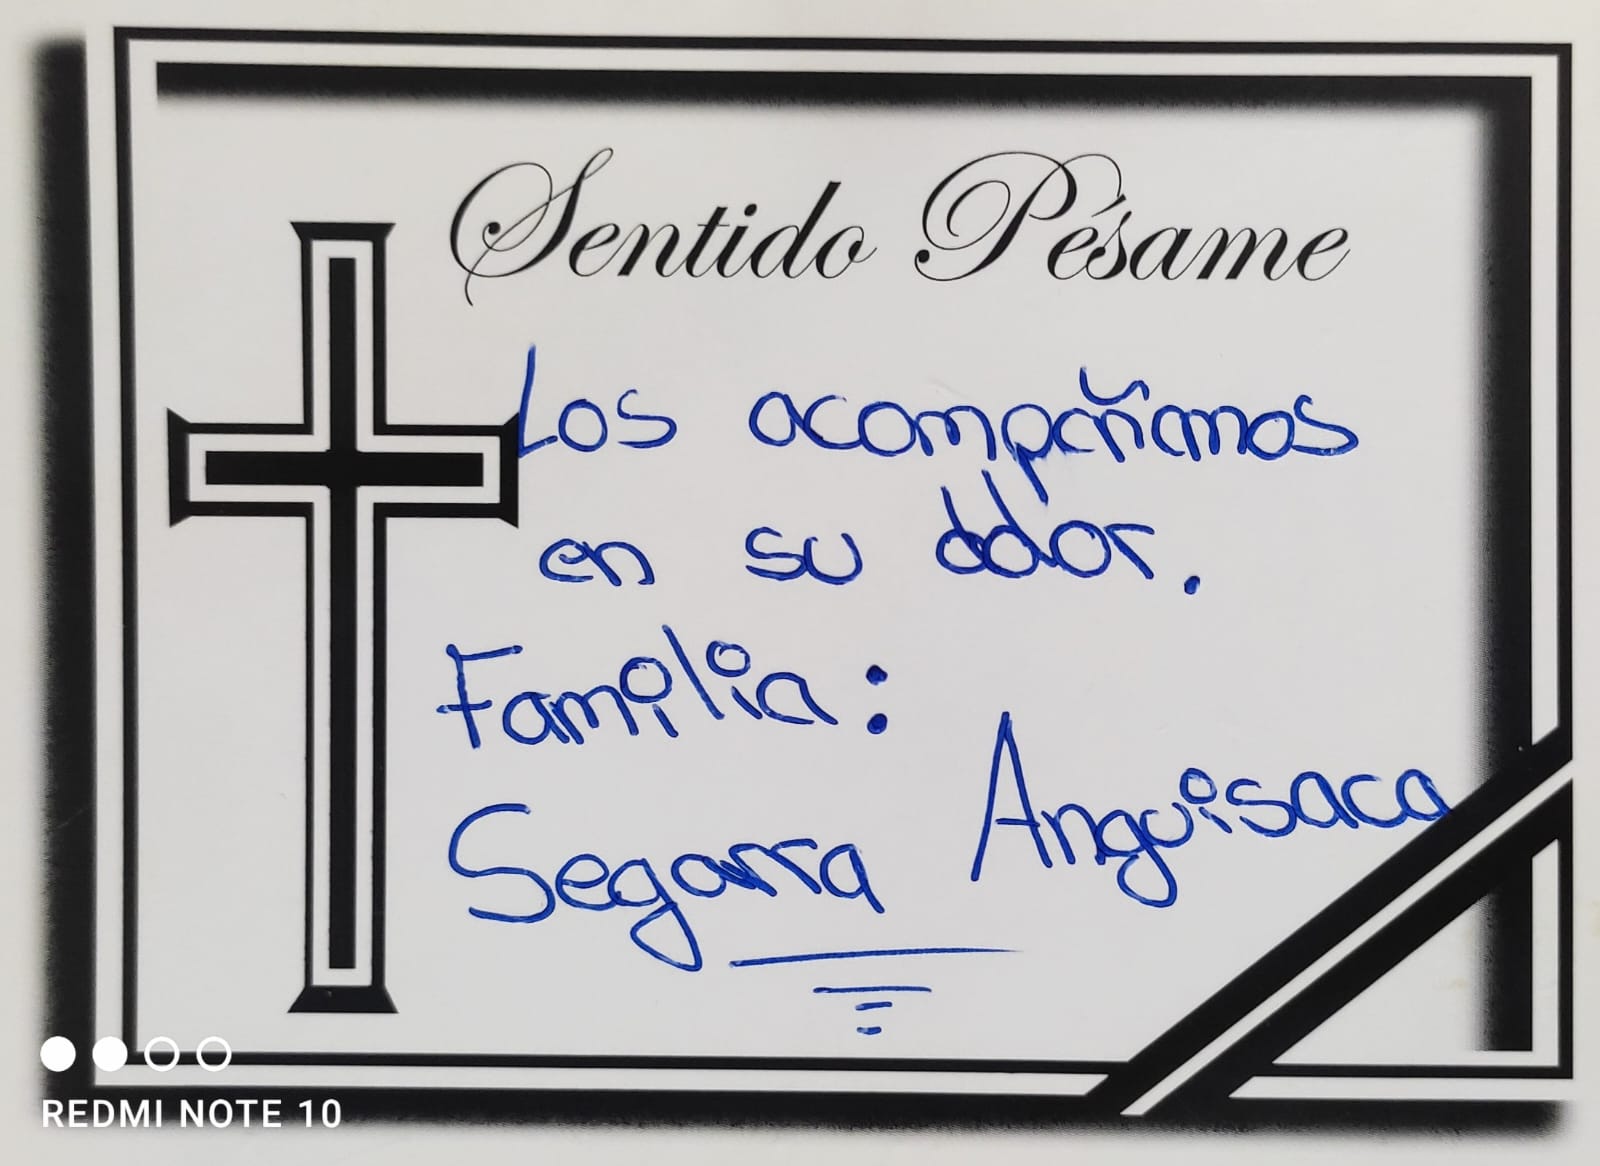 Sentido Pésame
Los acompañamos
en su dolor.
Familia:
Segarra Anguisaca
REDMI NOTE 10